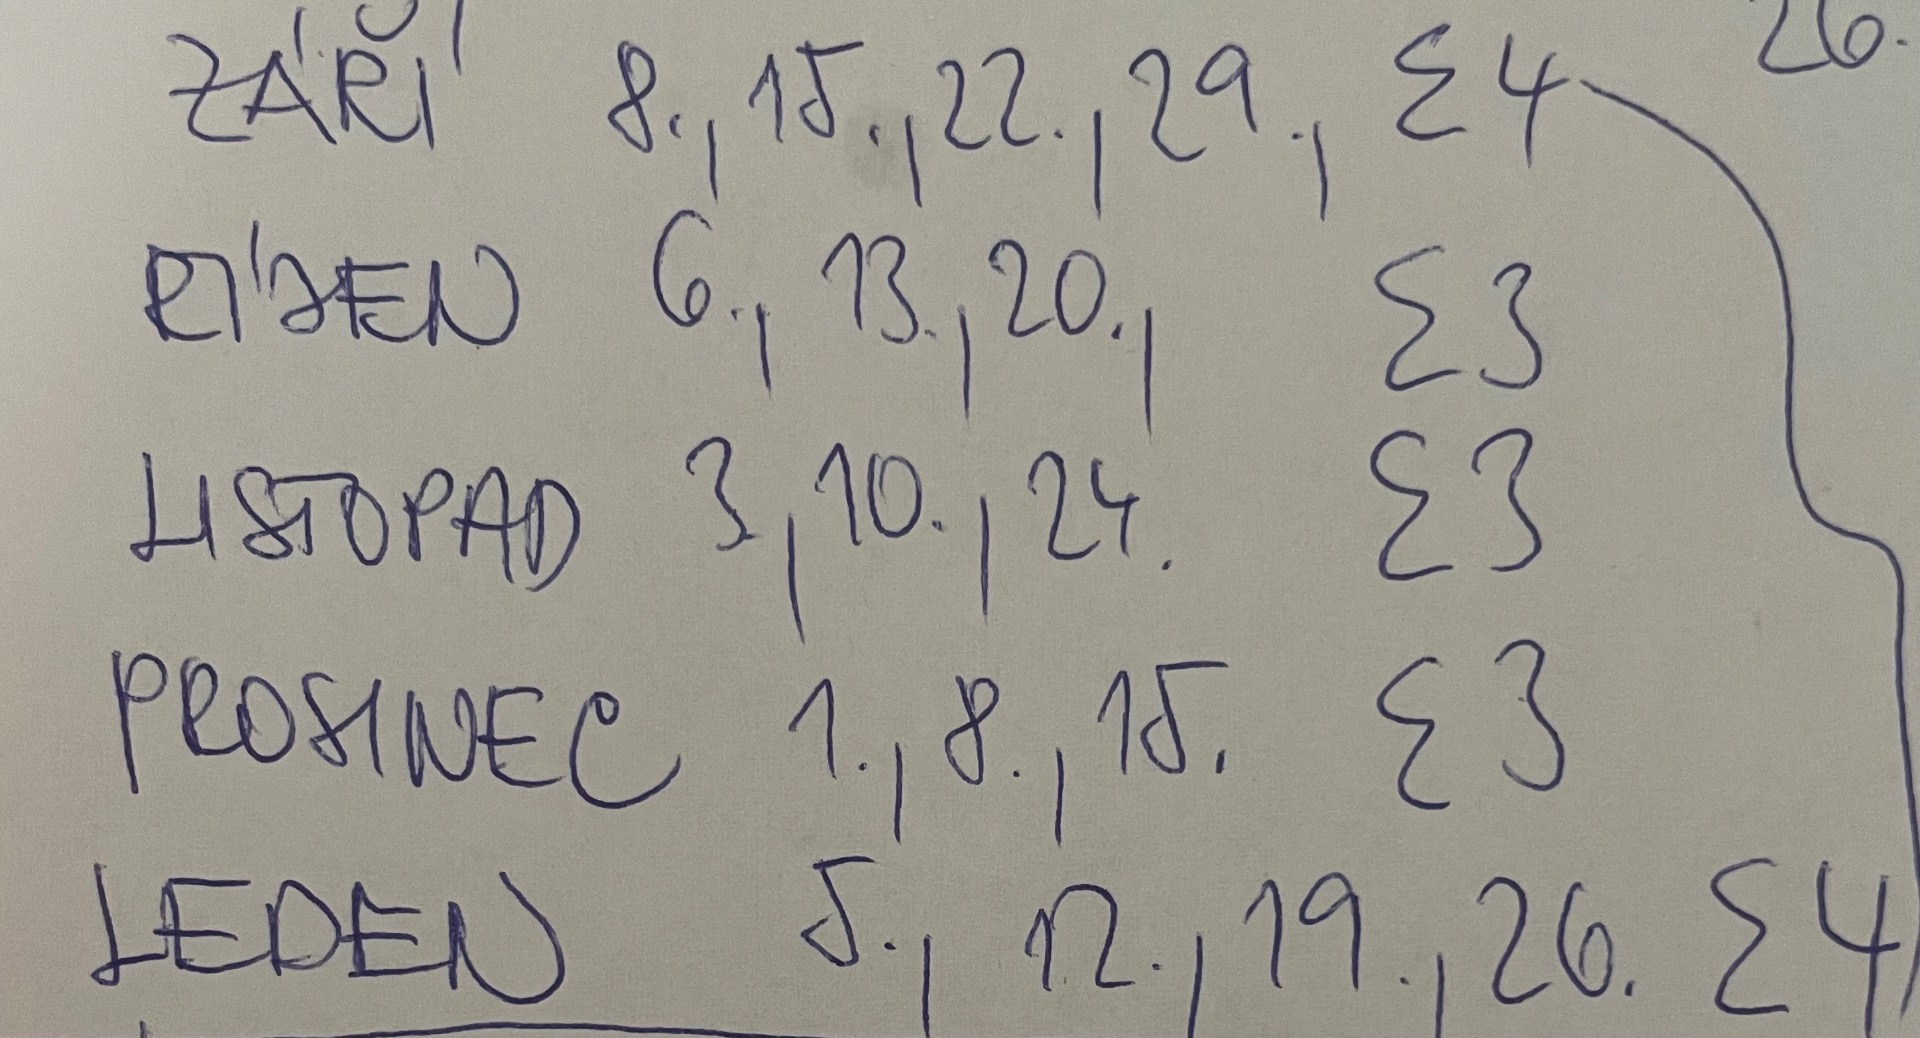 26.
ZÁŘÍ 8., 15., 22., 29., Σ4
RÍJEN 6., 13., 20., Σ3
LISTOPAD 3., 10., 24. Σ3
PROSINEC 1., 8., 15. Σ3
LEDEN 5., 12., 19., 26. Σ4